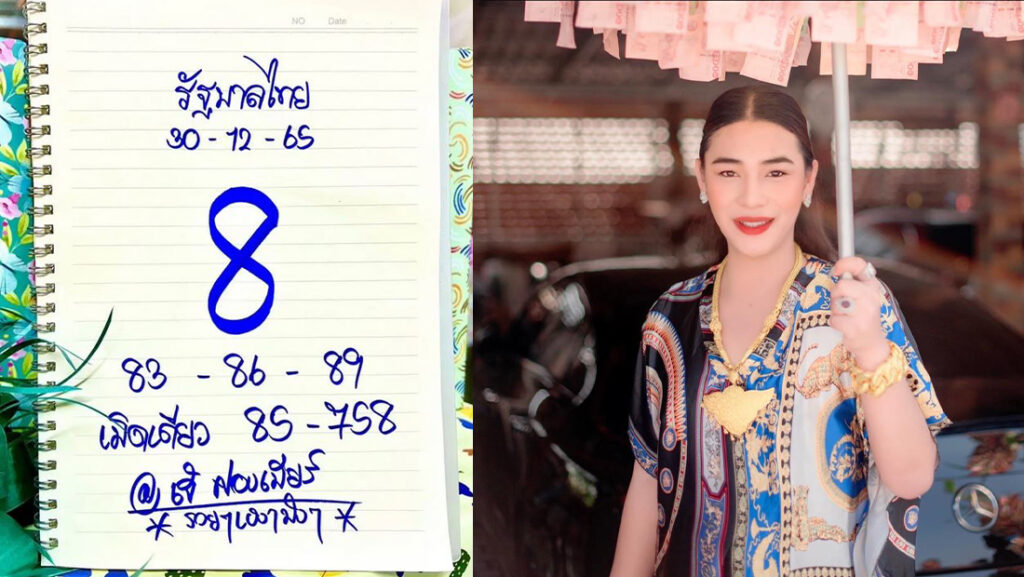 NO Date
รัฐบาลไทย
30-12-65
8
83 - 86 - 89
เม็ดเดียว 85-758
@เจ๊ ฟองเบียร์
* รวยๆเฮงๆปังๆ *